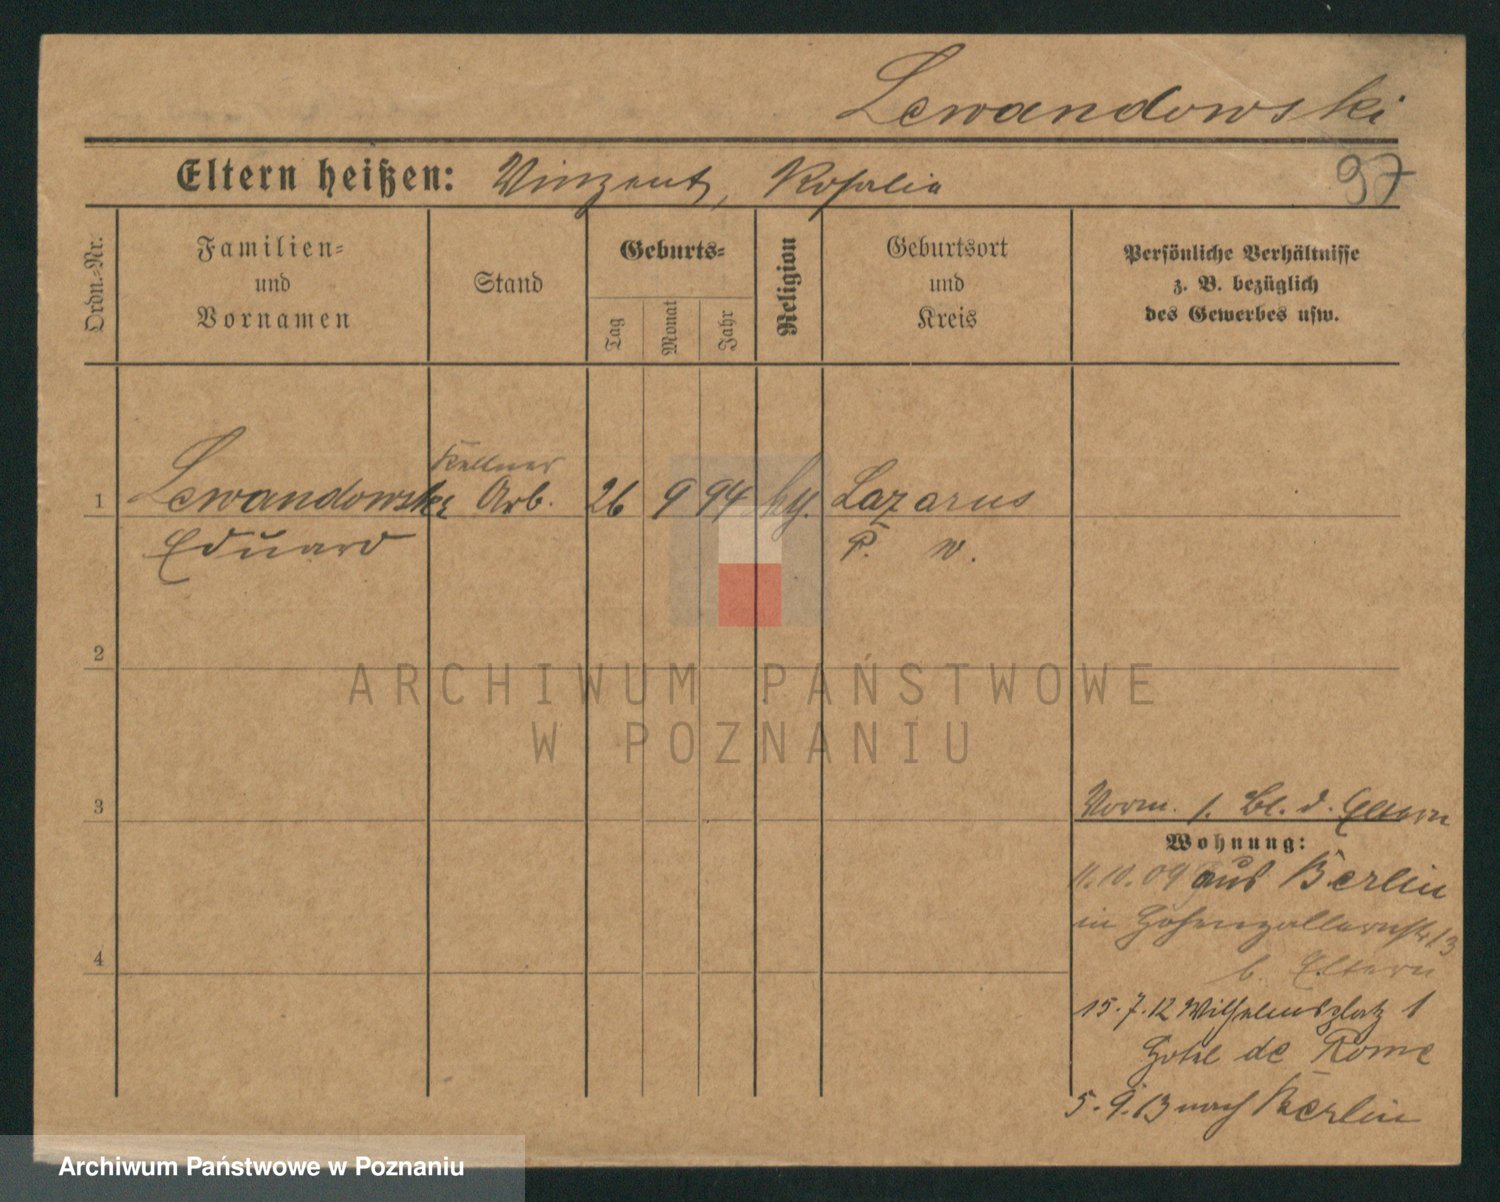 Lewandowski
Eltern heißen: Vinzent, Rosalie
97
Ordn.-Nr.
Familien-
und
Vornamen
Stand
Geburts-
Tag
Monat
Jahr
Religion
Geburtsort
und
Kreis
Persönliche Verhältnisse
z. B. bezüglich
des Gewerbes usw.
Kellner
1 Lewandowski Arb. 26 9 94 Lazarus
Eduard P. w.
2
3
4
Vorm. s. Bl. d. Eltern
Wohnung:
11.10.09 aus Berlin
in Hohenzollernstr 13
b. Eltern
15.7.12 Wilhelmsplatz 1
Hotel de Rome
5.9.13 nach Berlin
ARCHIWUM PAŃSTWOWE
W POZNANIU
Archiwum Państwowe w Poznaniu